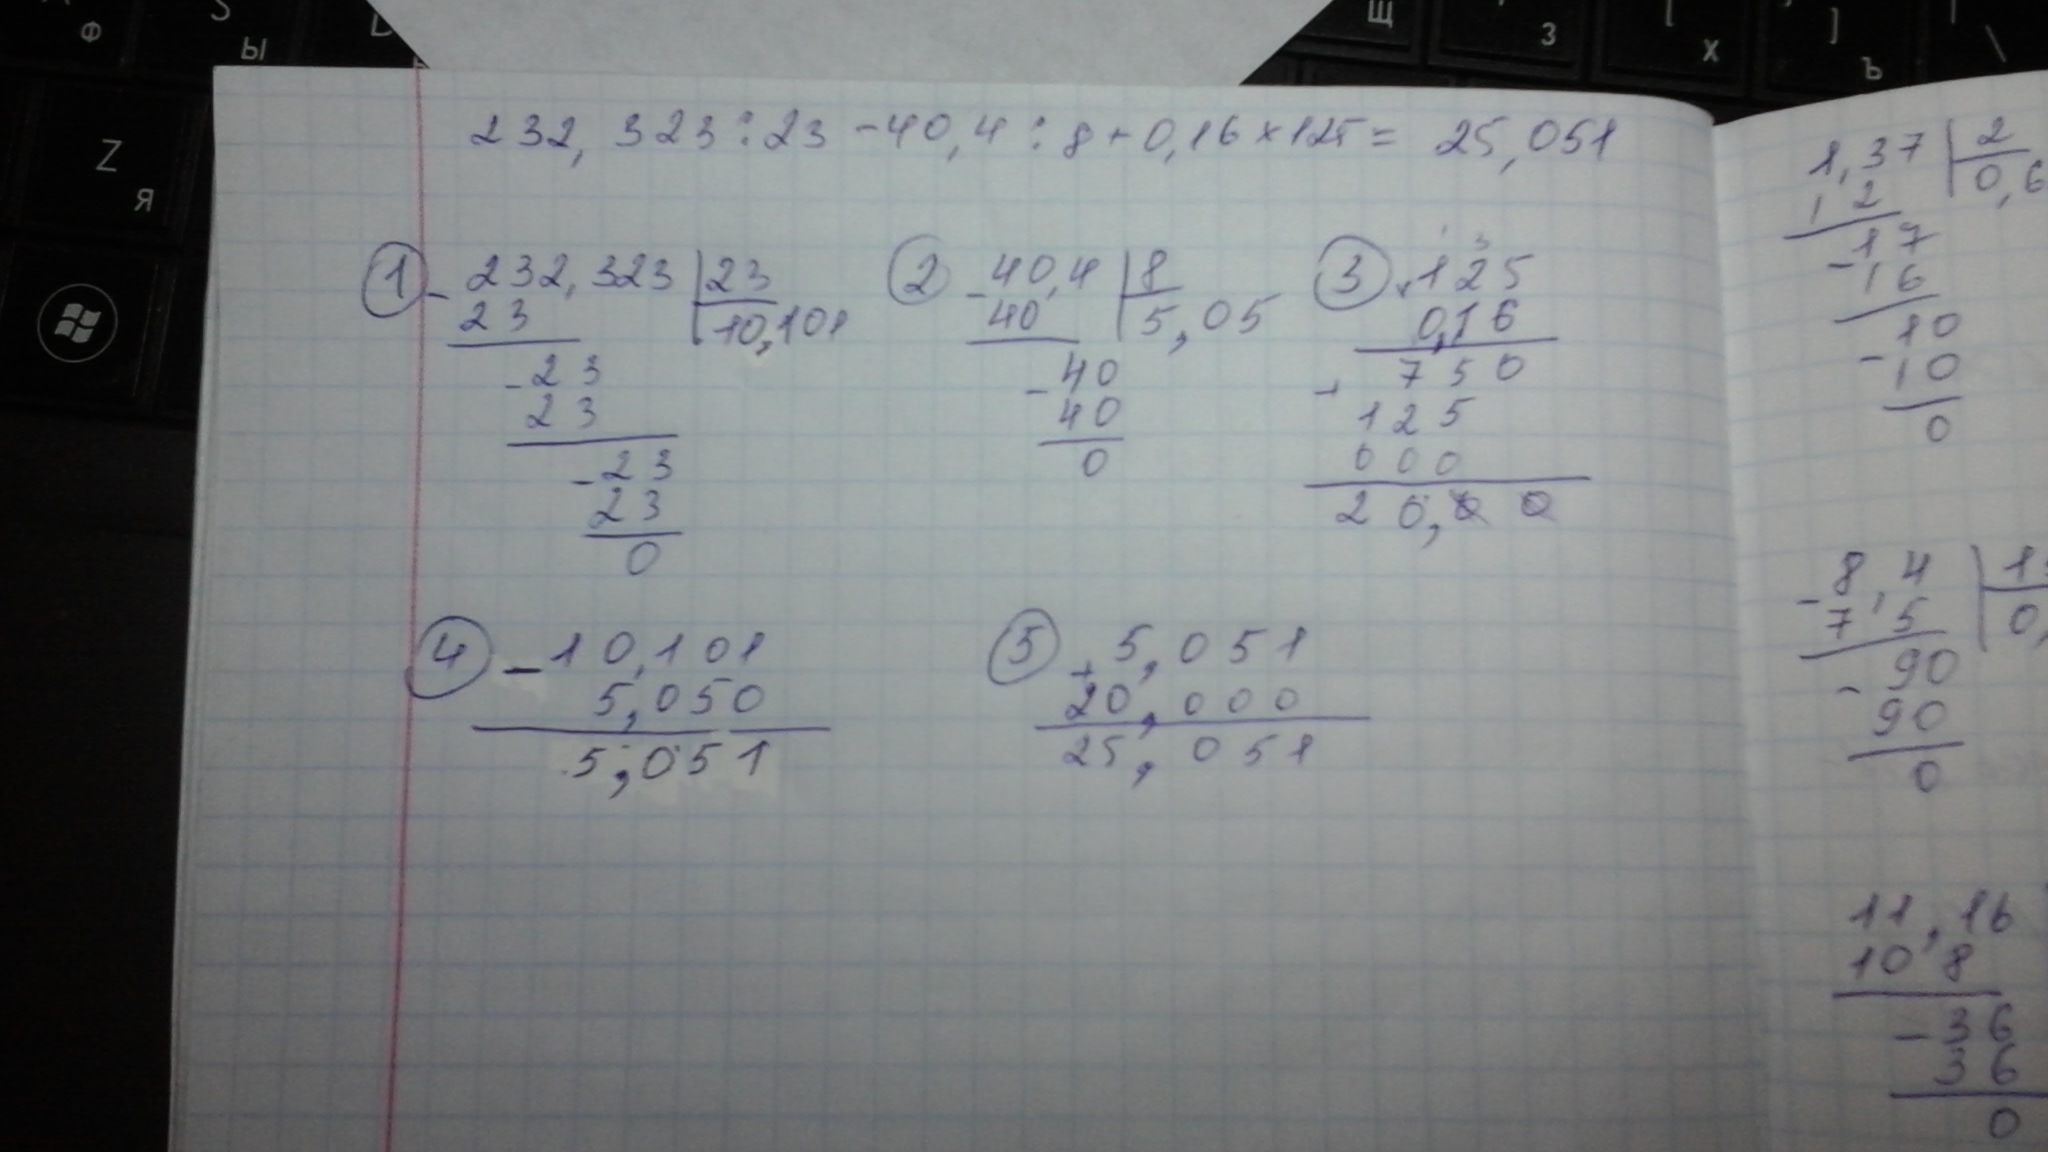 Ф
S
Ы
Щ
З
[
Х
]
Ъ
\
Z
Я
232,323:23-40,4:8+0,16×125=25,051
① -232,323 | 23
23 10,101
-23
23
-23
23
0
② -40,4 | 8
40 5,05
-40
40
0
1 3
③ ×125
0,16
750
+
125
000
20,00
④ -10,101
5,050
5,051
⑤ +5,051
20,000
25,051
1,37 | 2
12 0,6
-17
16
-10
10
0
-8,4
7 5 0,
-90
90
0
11,16
10 8
-36
36
0